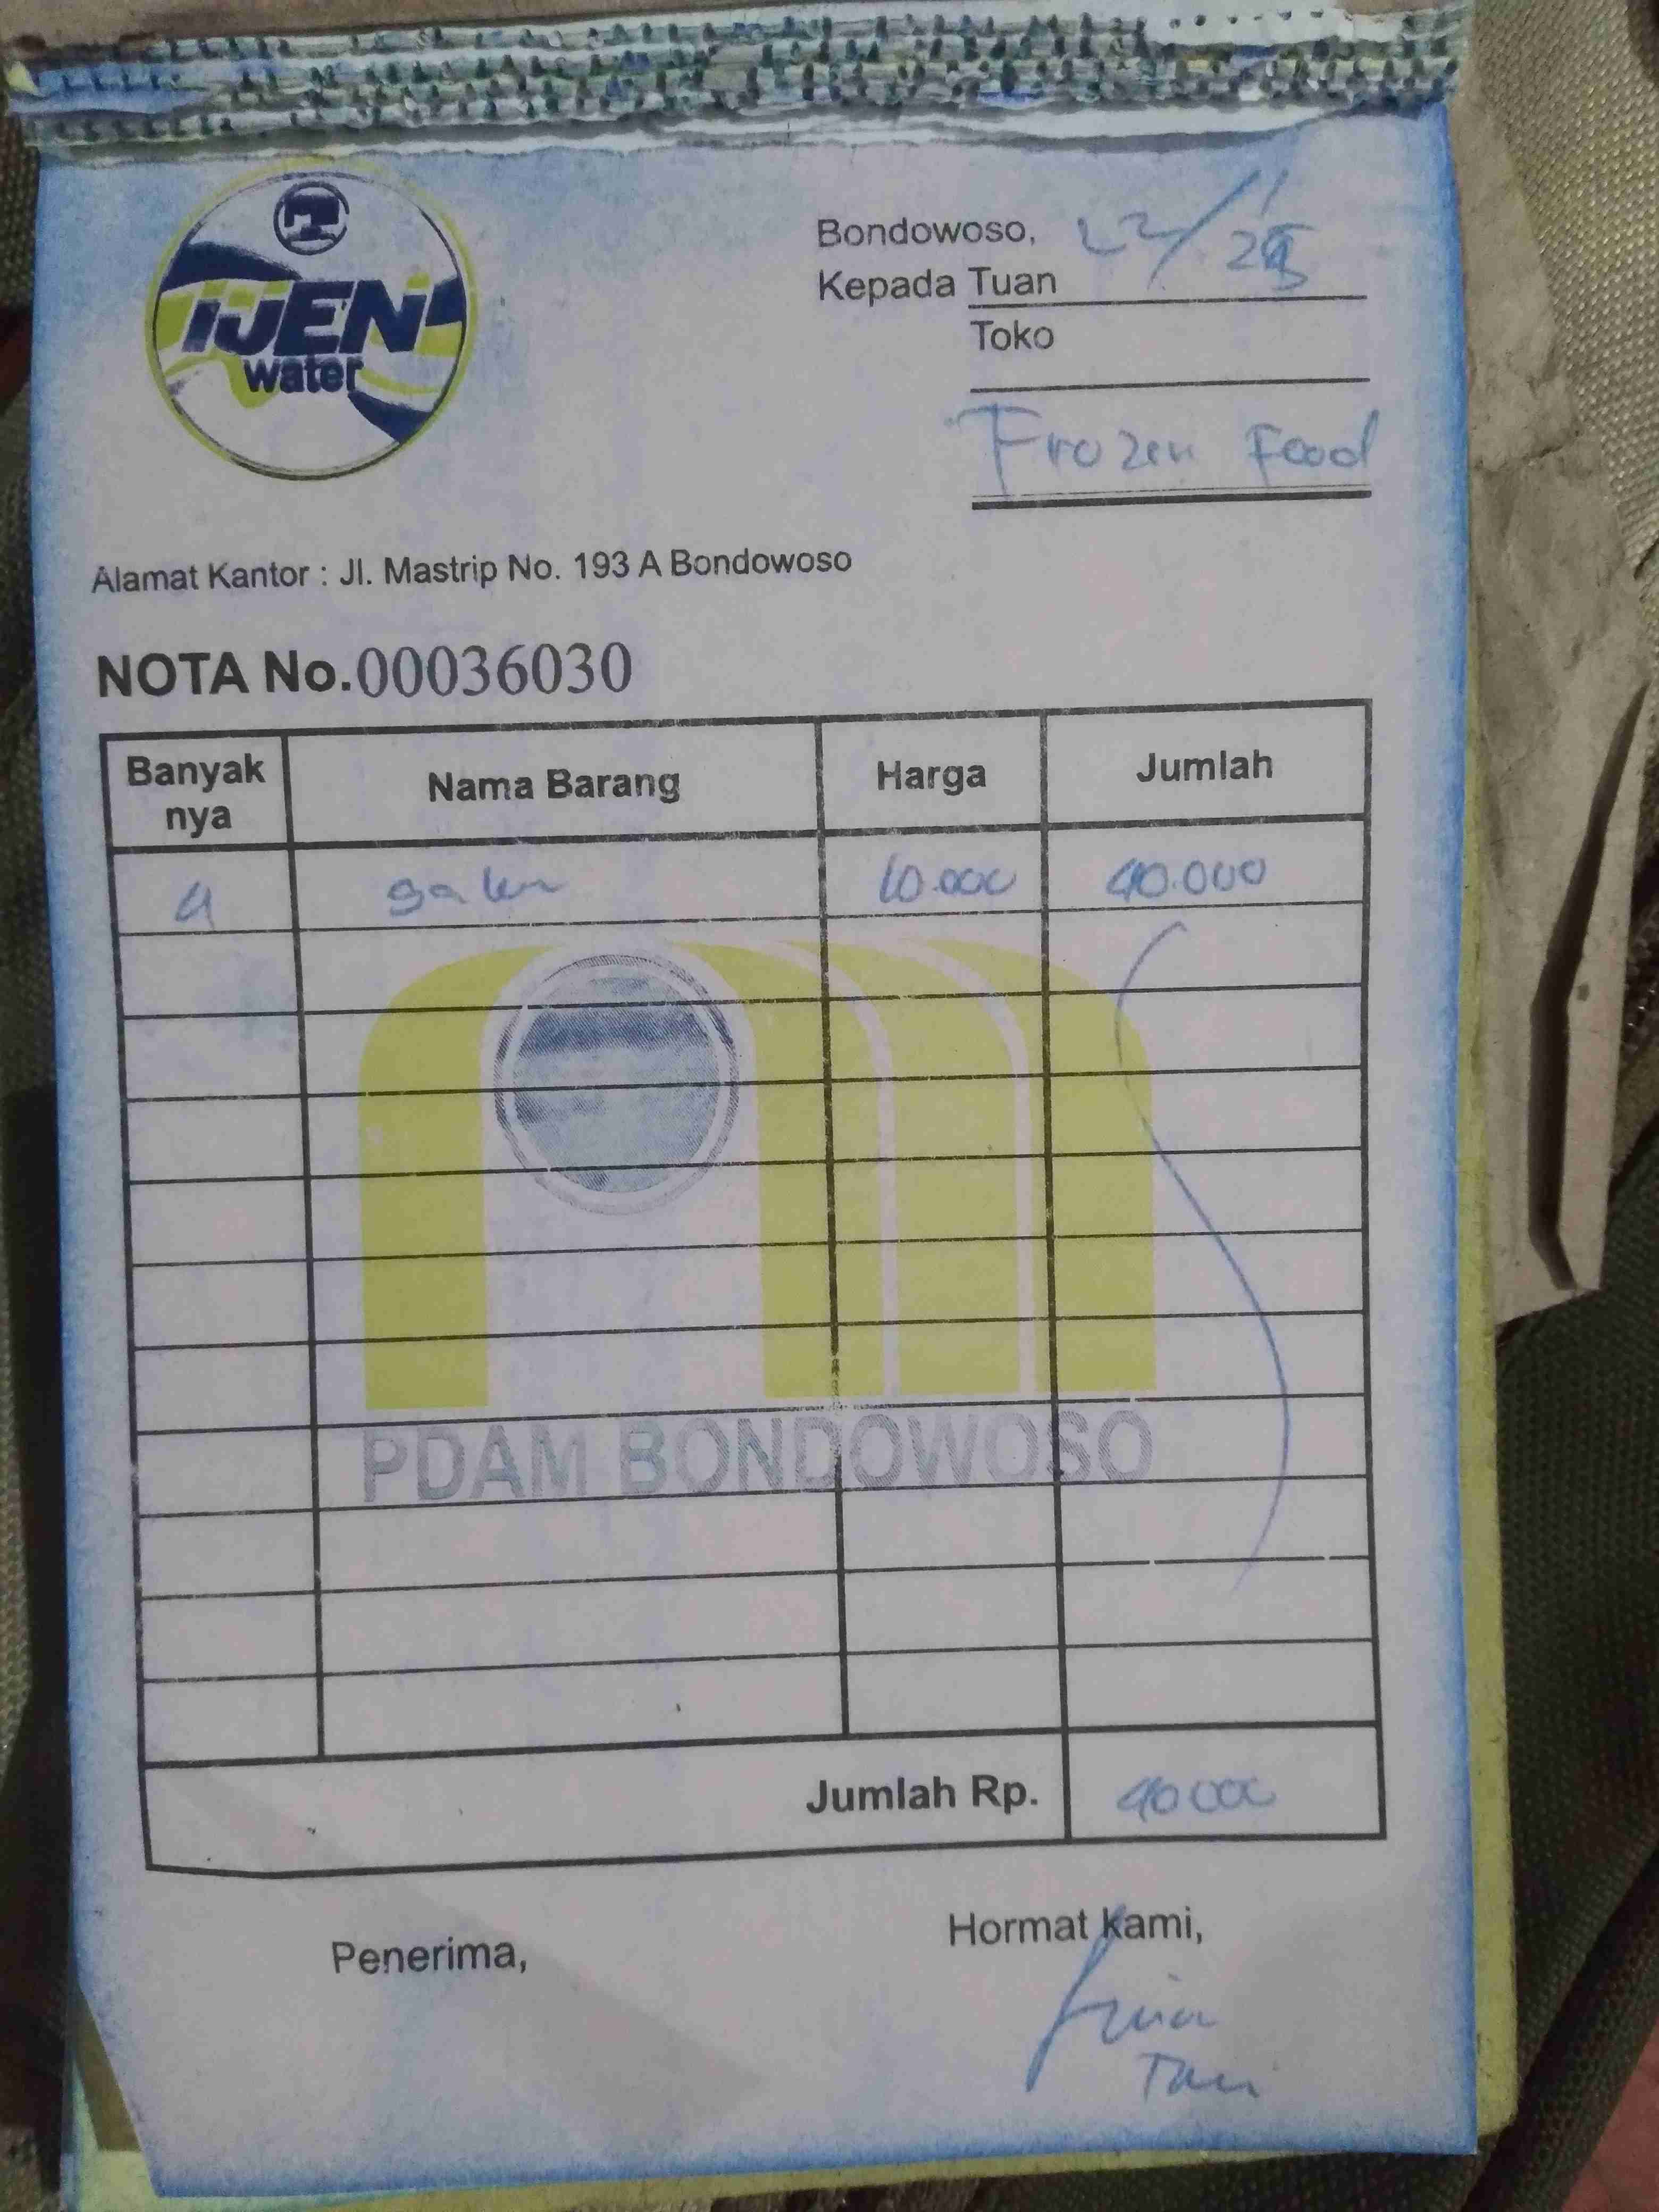 IJEN
water
Bondowoso, 22/11
Kepada Tuan
Toko
Frozen Food
Alamat Kantor : Jl. Mastrip No. 193 A Bondowoso
NOTA No.00036030
Banyak nya Nama Barang Harga Jumlah
4 galon 10.000 40.000
PDAM BONDOWOSO
Jumlah Rp. 40 000
Penerima,
Hormat kami,